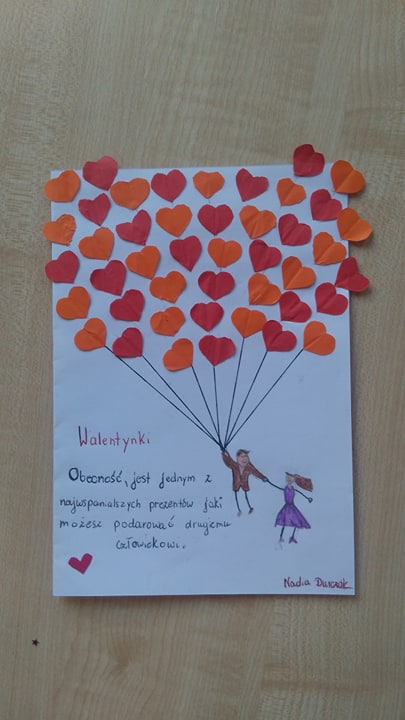 Walentynki
Obecność, jest jednym z
najwspanialszych prezentów jaki
możesz podarować drugiemu
człowiekowi.
Nadia